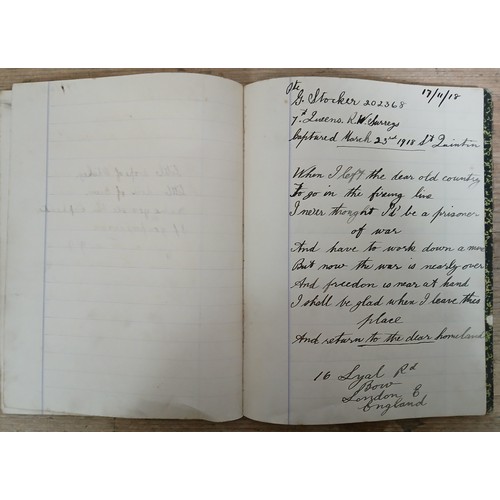 Pte
G. Stocker 202368
17/11/18
7th Queens R.W. Surreys
Captured March 23rd 1918 St Quintin
When I left the dear old country
To go in the fireing line
I never throught I'd be a prisoner
of war
And have to work down a mine
But now the war is nearly over
And freedon is near at hand
I shall be glad when I leave this
place
And return to the dear homeland
16 Lyal Rd
Bow
London E
England